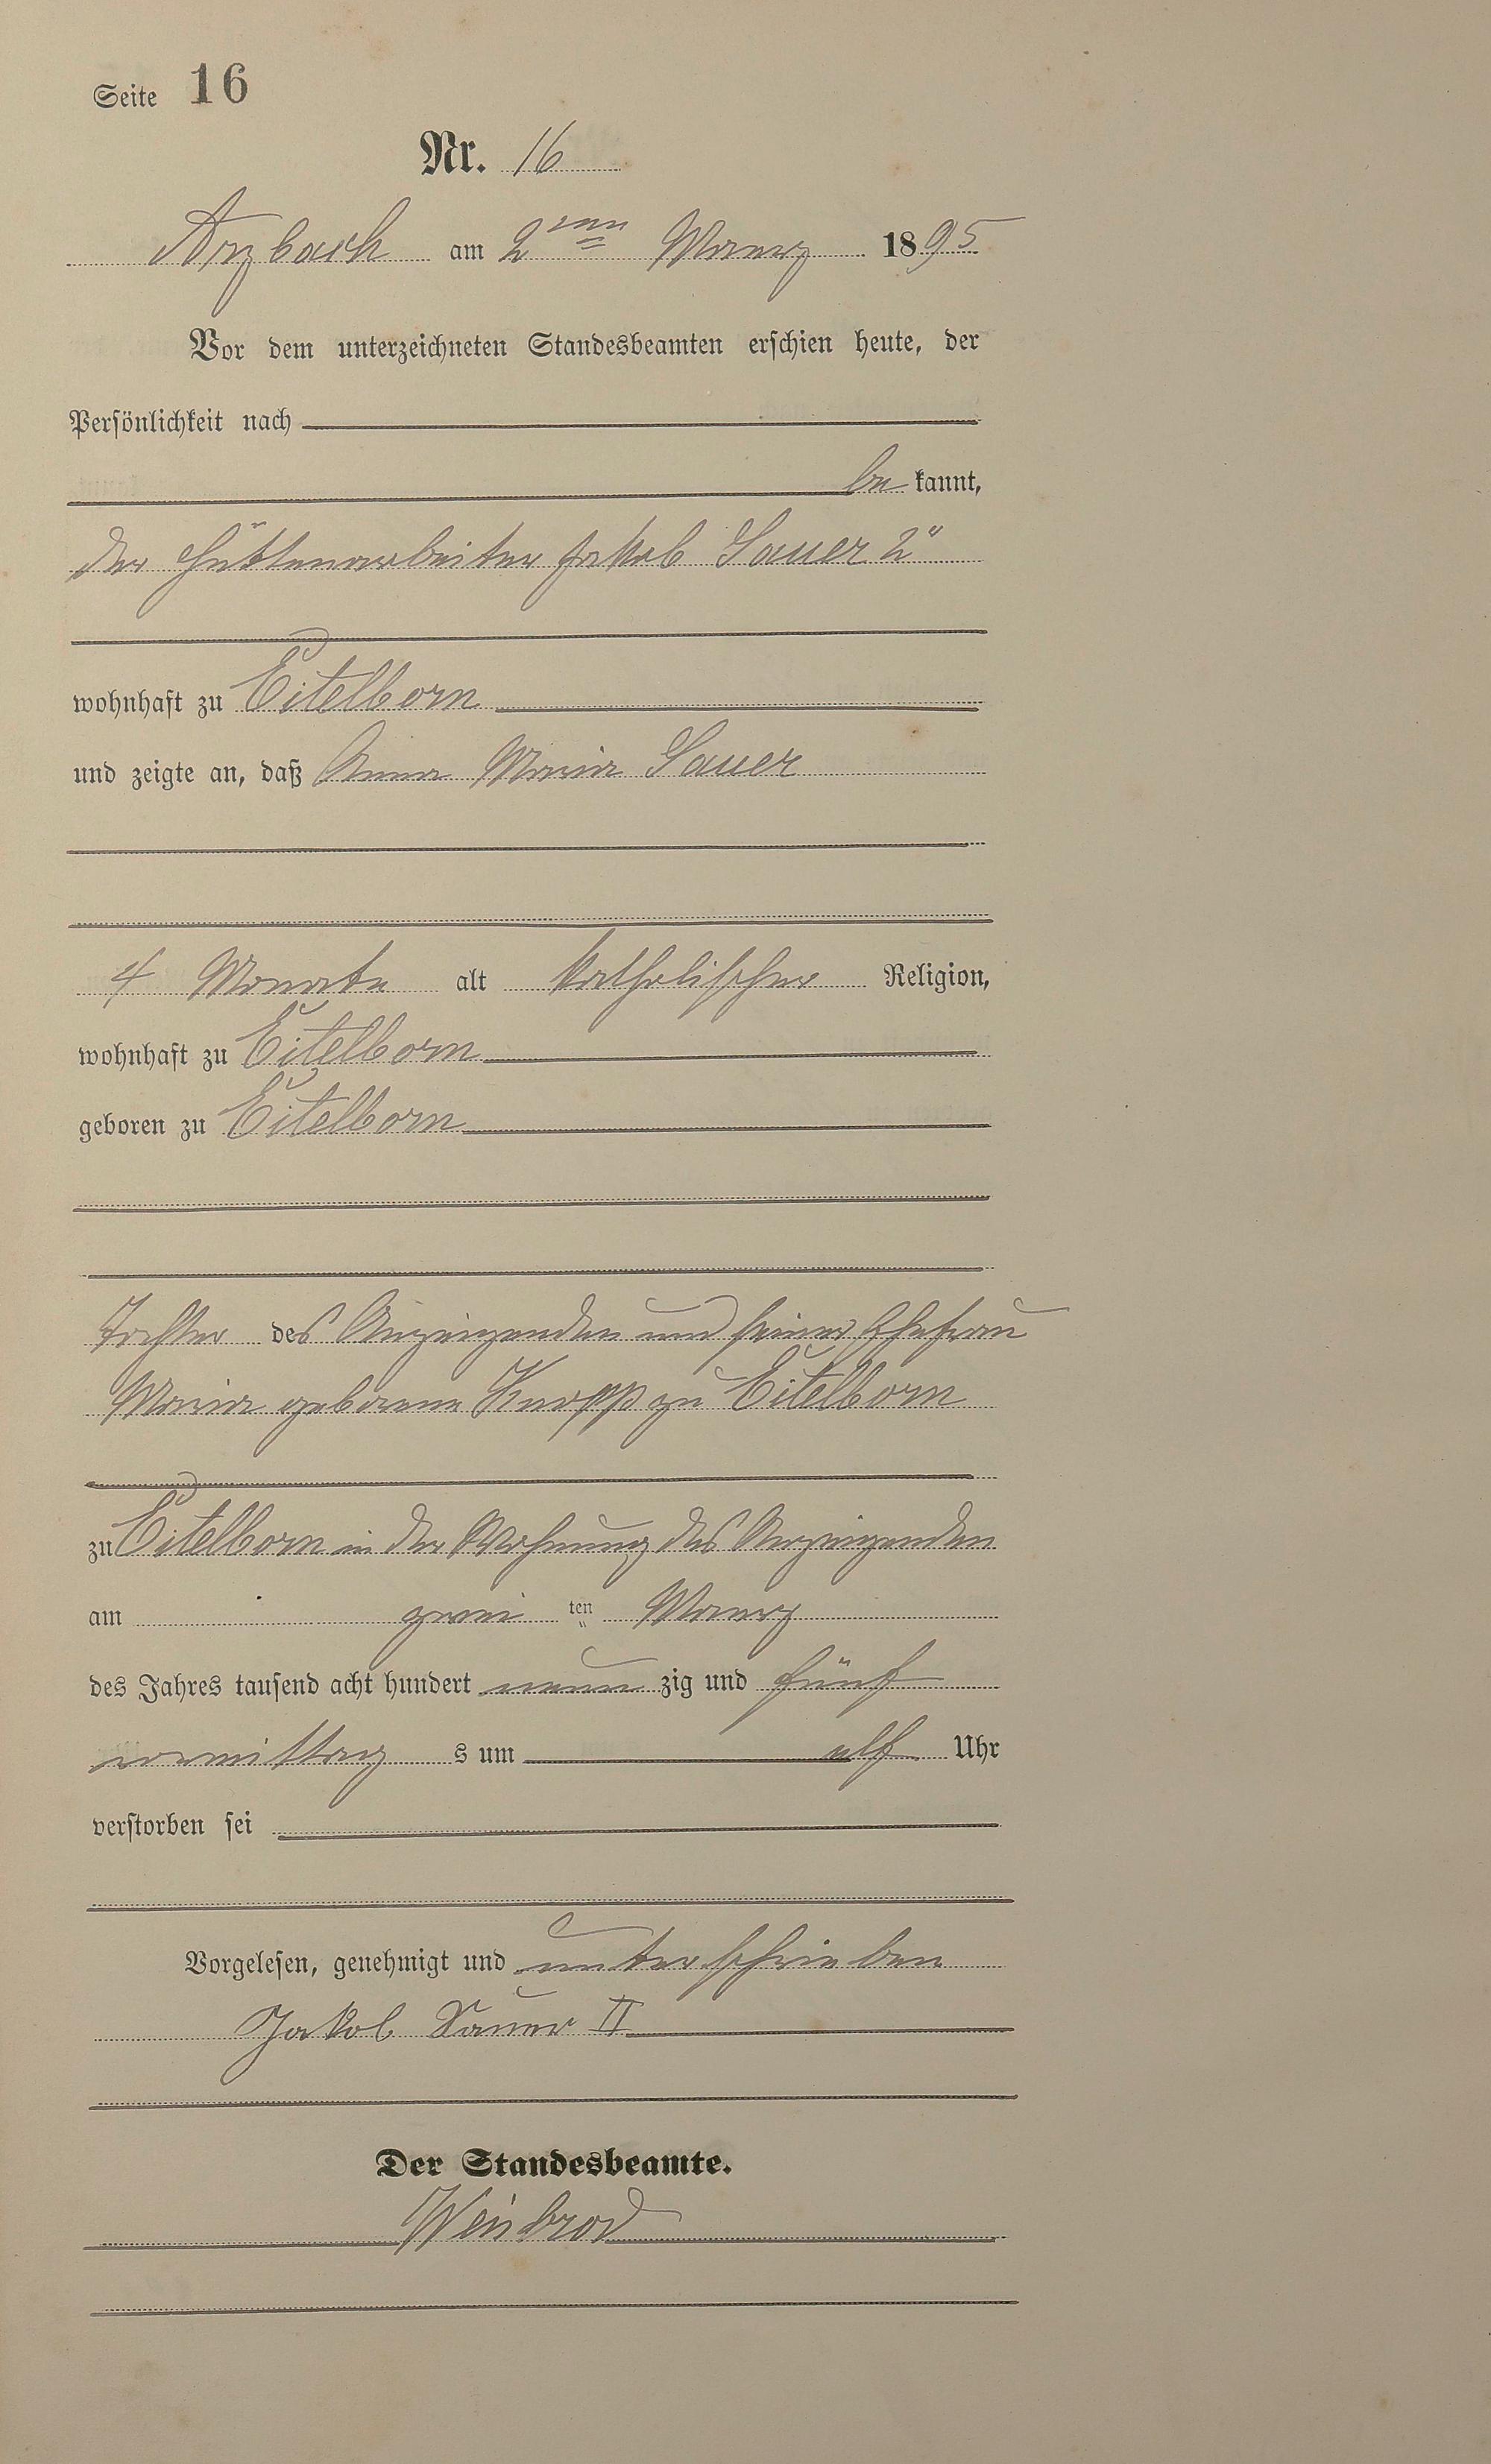 Seite 16
Nr. 16
Arzbach am 2ten Maerz 1895
Vor dem unterzeichneten Standesbeamten erschien heute, der
Persönlichkeit nach
be kannt,
der Hüttenarbeiter Jakob Sauer 2"
wohnhaft zu Eitelborn
und zeigte an, daß Anna Maria Sauer
4 Monate alt katholischer Religion,
wohnhaft zu Eitelborn
geboren zu Eitelborn
Tochter des Anzeigenden und seiner Ehefrau
Maria geborene Knopp zu Eitelborn
zu Eitelborn in der Wohnung des Anzeigenden
am zwei ten Maerz
des Jahres tausend acht hundert neun zig und fünf
vormittag s um elf Uhr
verstorben sei
Vorgelesen, genehmigt und unterschrieben
Jakob Sauer II
Der Standesbeamte.
Weinbrod